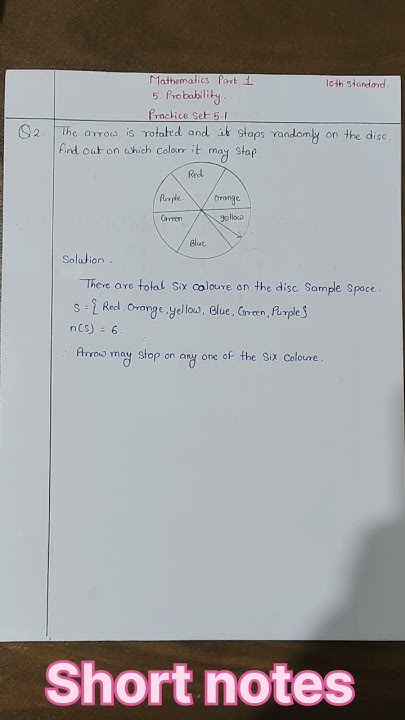 Mathematics Part 1
10th Standard.
5. Probability.
Practice Set 5.1
Q2. The arrow is rotated and it stops randomly on the disc.
find out on which colour it may stop.
Red
Purple
Orange
Green
yellow
Blue
Solution.
There are total six coloure on the disc sample space.
S = { Red, Orange, yellow, Blue, Green, Purple }
n(S) = 6.
∴ Arrow may stop on any one of the six coloure.
Short notes